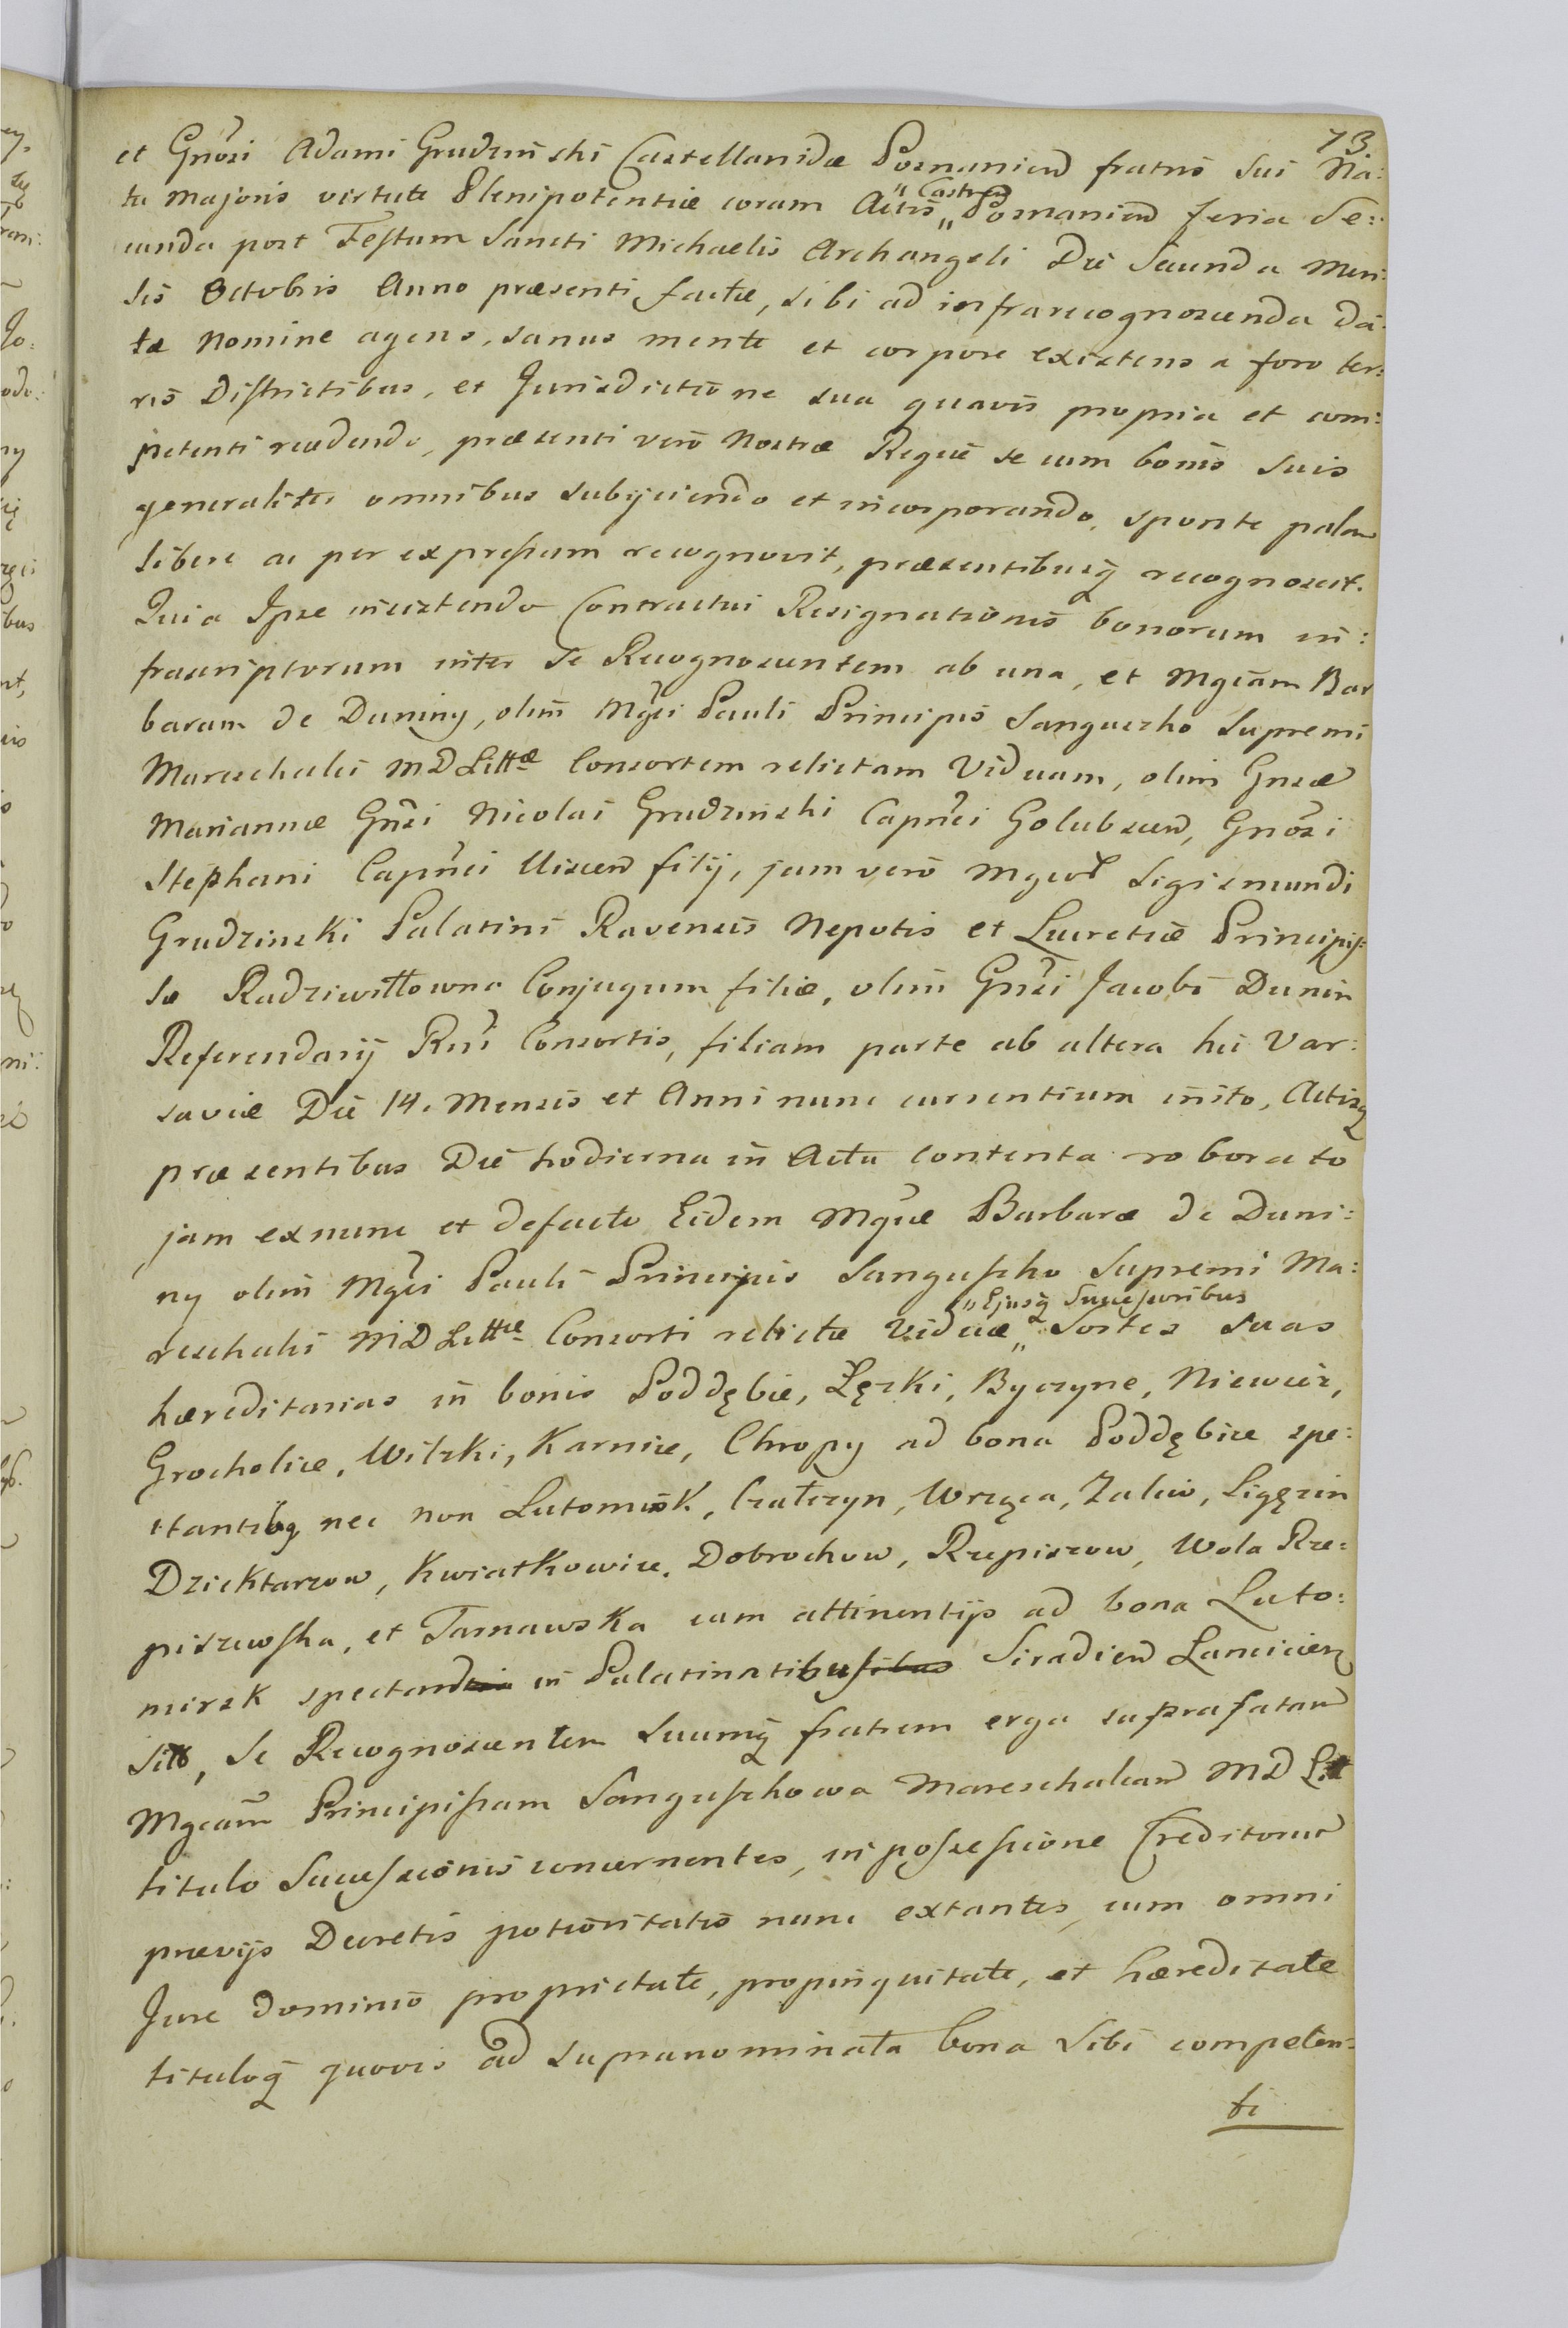 73
et Gnõsi Adami Grudzinski Castellanidæ Posnanien fratris sui Na:
tu Majoris virtute Plenipotentiæ coram Actis „Castren„ Posnanien feria Se:
cunda post Festum Sancti Michaelis Archangeli Die Secunda Men:
sis Octobris Anno præsenti factæ, sibi ad infrarecognoscenda da:
tæ Nomine agens, sanus mente et corpore existens a foro ter:
ris Districtibus, et Jurisdictione sua quavis propria et com:
petenti recedendo, præsenti vero Nostræ Regiæ se cum bonis suis
generaliter omnibus subijciendo et incorporando, sponte palam
libere ac per expressum recognovit, præsentibusq recognoscit.
Quia Ipse insistendo Contractui Resignationis bonorum in:
frascriptorum inter Se Recognoscentem ab una, et Mgcam Bar
baram de Duniny, olim Mgci Pauli Principis Sanguszko Supremi
Mareschalci MD Littæ Consortem relictam Viduam, olim Gnsæ
Mariannæ Gnsi Nicolai Grudzinski Capnei Golubscen, Gnõsi
Stephani Capnei Uiscen filij, jam vero Mgci Sigismundi
Grudzinski Palatini Ravensis Nepotis et Lucretiæ Principis:
sæ Radziwiłłowna Conjugum filiæ, olim Gnsi Jacobi Dunin
Referendarij Rni Consortis, filiam parte ab altera hic Var:
saviæ Die 14. Mensis et Anni nunc currentium inito, Actisq
præsentibus Die hodierna in Acta contenta roborato
jam exnunc et defacto Eidem Mgcæ Barbaræ de Duni:
ny olim Mgci Pauli Principis Sanguszko Supremi Ma:
reschalci MD Littæ Consorti relictæ Viduæ „Ejusq Successoribus„ Sortes suas
hæreditarias in bonis Poddębice, Lęzki, Byczyne, Niewiesz,
Grocholice, Wilzki, Karnice, Chropy ad bona Poddębice spe:
ctantibq nec non Lutomirsk, Czałczyn, Wrzęca, Zalew, Ligęzin
Dziektarzow, Kwiatkowice, Dobrochow, Rzepiszow, Wola Rze:
piszewska, et Tarnawska cum attinentijs ad bona Luto:
mirsk spectand in Palatinatibus Siradien Lancicien
sitis, Se Recognoscentem Suumq fratrem erga suprafatam
Mgcam Principissam Sanguszkowa Mareschalcam MD Litt
titulo Successionis concernentes, in possessione Creditorum
prævijs Decretis potioritatis nunc extantes, cum omni
Jure dominio proprietate, propinquitate, et hæreditate
tituloq quovis ad supranominata bona sibi competen:
ti